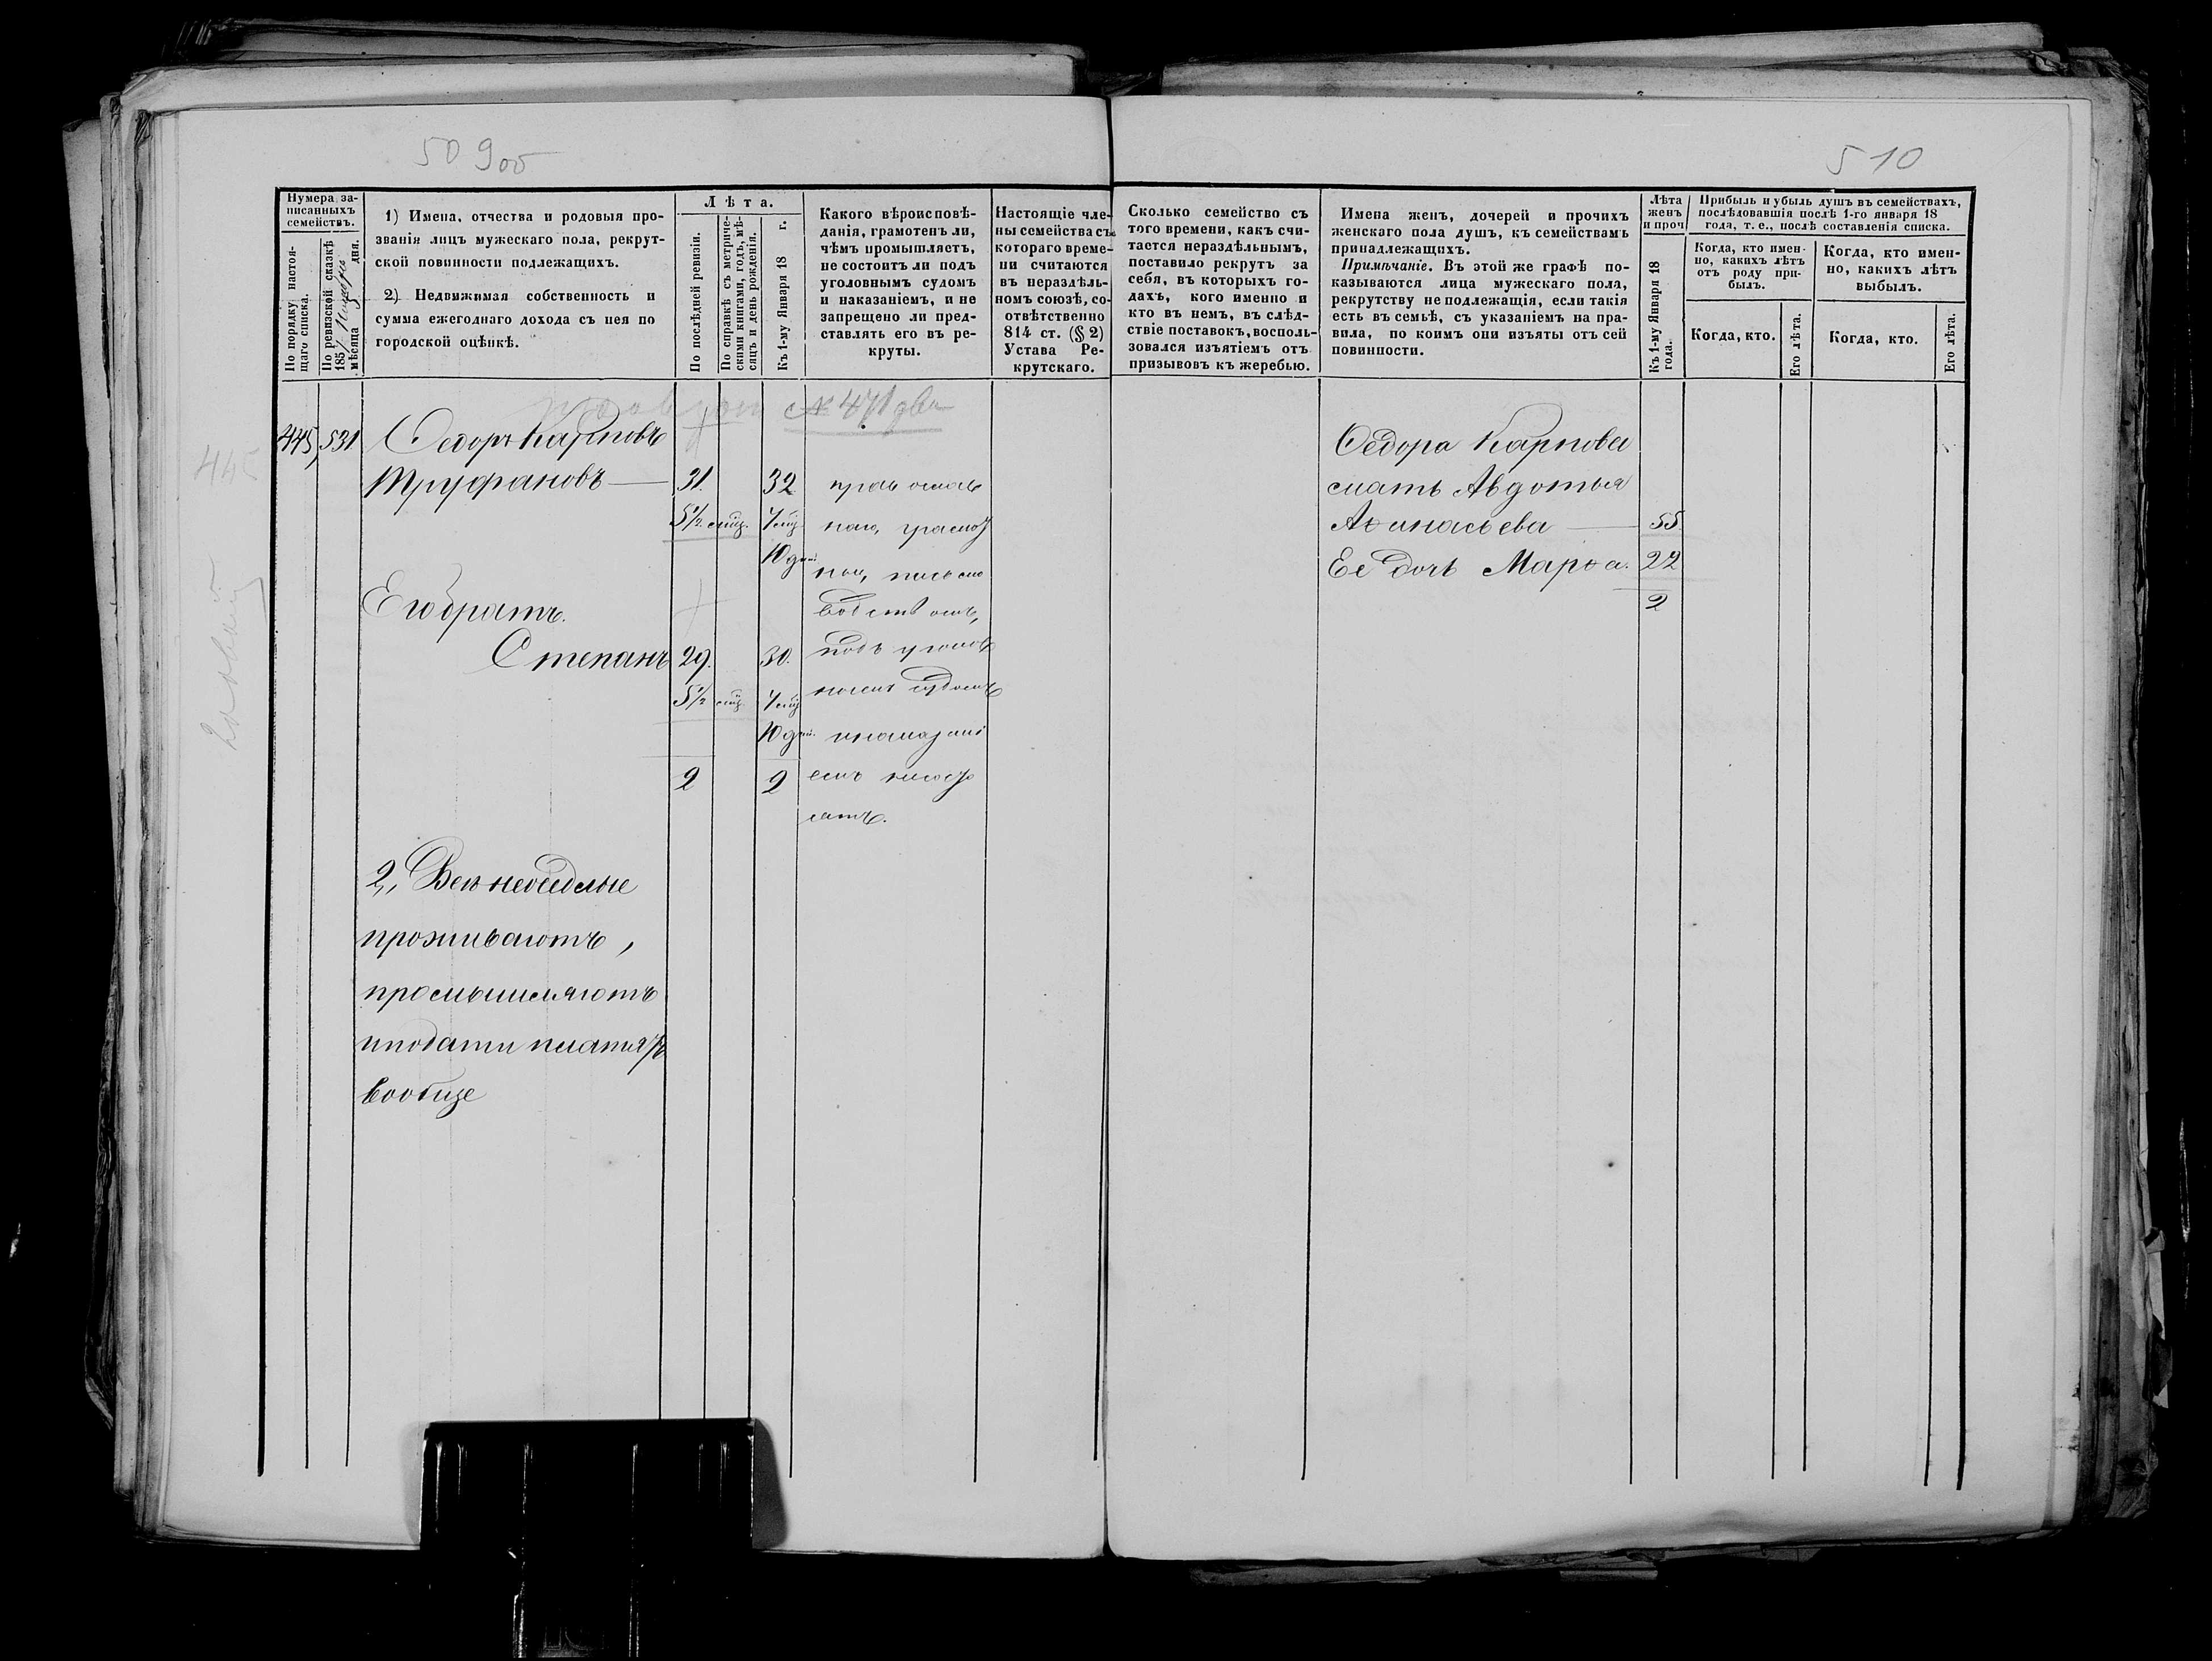 509об
510
Нумера за-
писанныхъ
семействъ.
По порядку настоя-
щаго списка.
По ревизской сказкѣ
1857
мѣсяца 5 дня.
1) Имена, отчества и родовыя про-
званія лицъ мужескаго пола, рекрут-
ской повинности подлежащихъ.
2) Недвижимая собственность и
сумма ежегоднаго дохода съ нея по
городской оцѣнкѣ.
Лѣта.
По послѣдней ревизіи.
По справкѣ съ метриче-
скими книгами, годъ, мѣ-
сяцъ и день рожденія.
Къ 1-му Января 18 г.
Какого вѣроисповѣ-
данія, грамотенъ ли,
чѣмъ промышляетъ,
не состоитъ ли подъ
уголовнымъ судомъ
и наказаніемъ, и не
запрещено ли пред-
ставлять его въ ре-
круты.
Настоящіе чле-
ны семейства съ
котораго време-
ни считаются
въ нераздѣль-
номъ союзѣ, со-
отвѣтственно
814 ст. (§ 2)
Устава Ре-
крутскаго.
Сколько семейство съ
того времени, какъ счи-
тается нераздѣльнымъ,
поставило рекрутъ за
себя, въ которыхъ го-
дахъ, кого именно и
кто въ немъ, въ слѣд-
ствіе поставокъ, восполь-
зовался изъятіемъ отъ
призывовъ къ жеребью.
Имена женъ, дочерей и прочихъ
женскаго пола душъ, къ семействамъ
принадлежащихъ.
Примѣчаніе. Въ этой же графѣ по-
казываются лица мужескаго пола,
рекрутству не подлежащія, если такія
есть въ семьѣ, съ указаніемъ на пра-
вила, по коимъ они изъяты отъ сей
повинности.
Лѣта
женъ
и проч
Къ 1-му Января 18
года.
Прибыль и убыль душъ въ семействахъ,
послѣдовавшія послѣ 1-го января 18
года, т. е., послѣ составленія списка.
Когда, кто имен-
но, какихъ лѣтъ
отъ роду при-
былъ.
Когда, кто имен-
но, какихъ лѣтъ
выбылъ.
Когда, кто.
Его лѣта.
Когда, кто.
Его лѣта.
№ 471
445
445, 531 Ѳедоръ Карповъ
Труфановъ 31. 32
5½ мѣц. 7 мѣц
10 дней
Его братъ.
Степанъ 29. 30.
5½ мѣц. 7 мѣц
10 дней
2 2
православ
наго, грамот
ны, письмо
водствомъ,
подъ уголов
нымъ судомъ
и наказані
емъ несосто
ятъ.
2, Внѣ недѣли
проживаютъ,
промышляютъ
и подати платятъ
вообще
Ѳедора Карпова
мать Авдотья
Аѳанасьева 55
Ее дочь Марѳа. 22
2